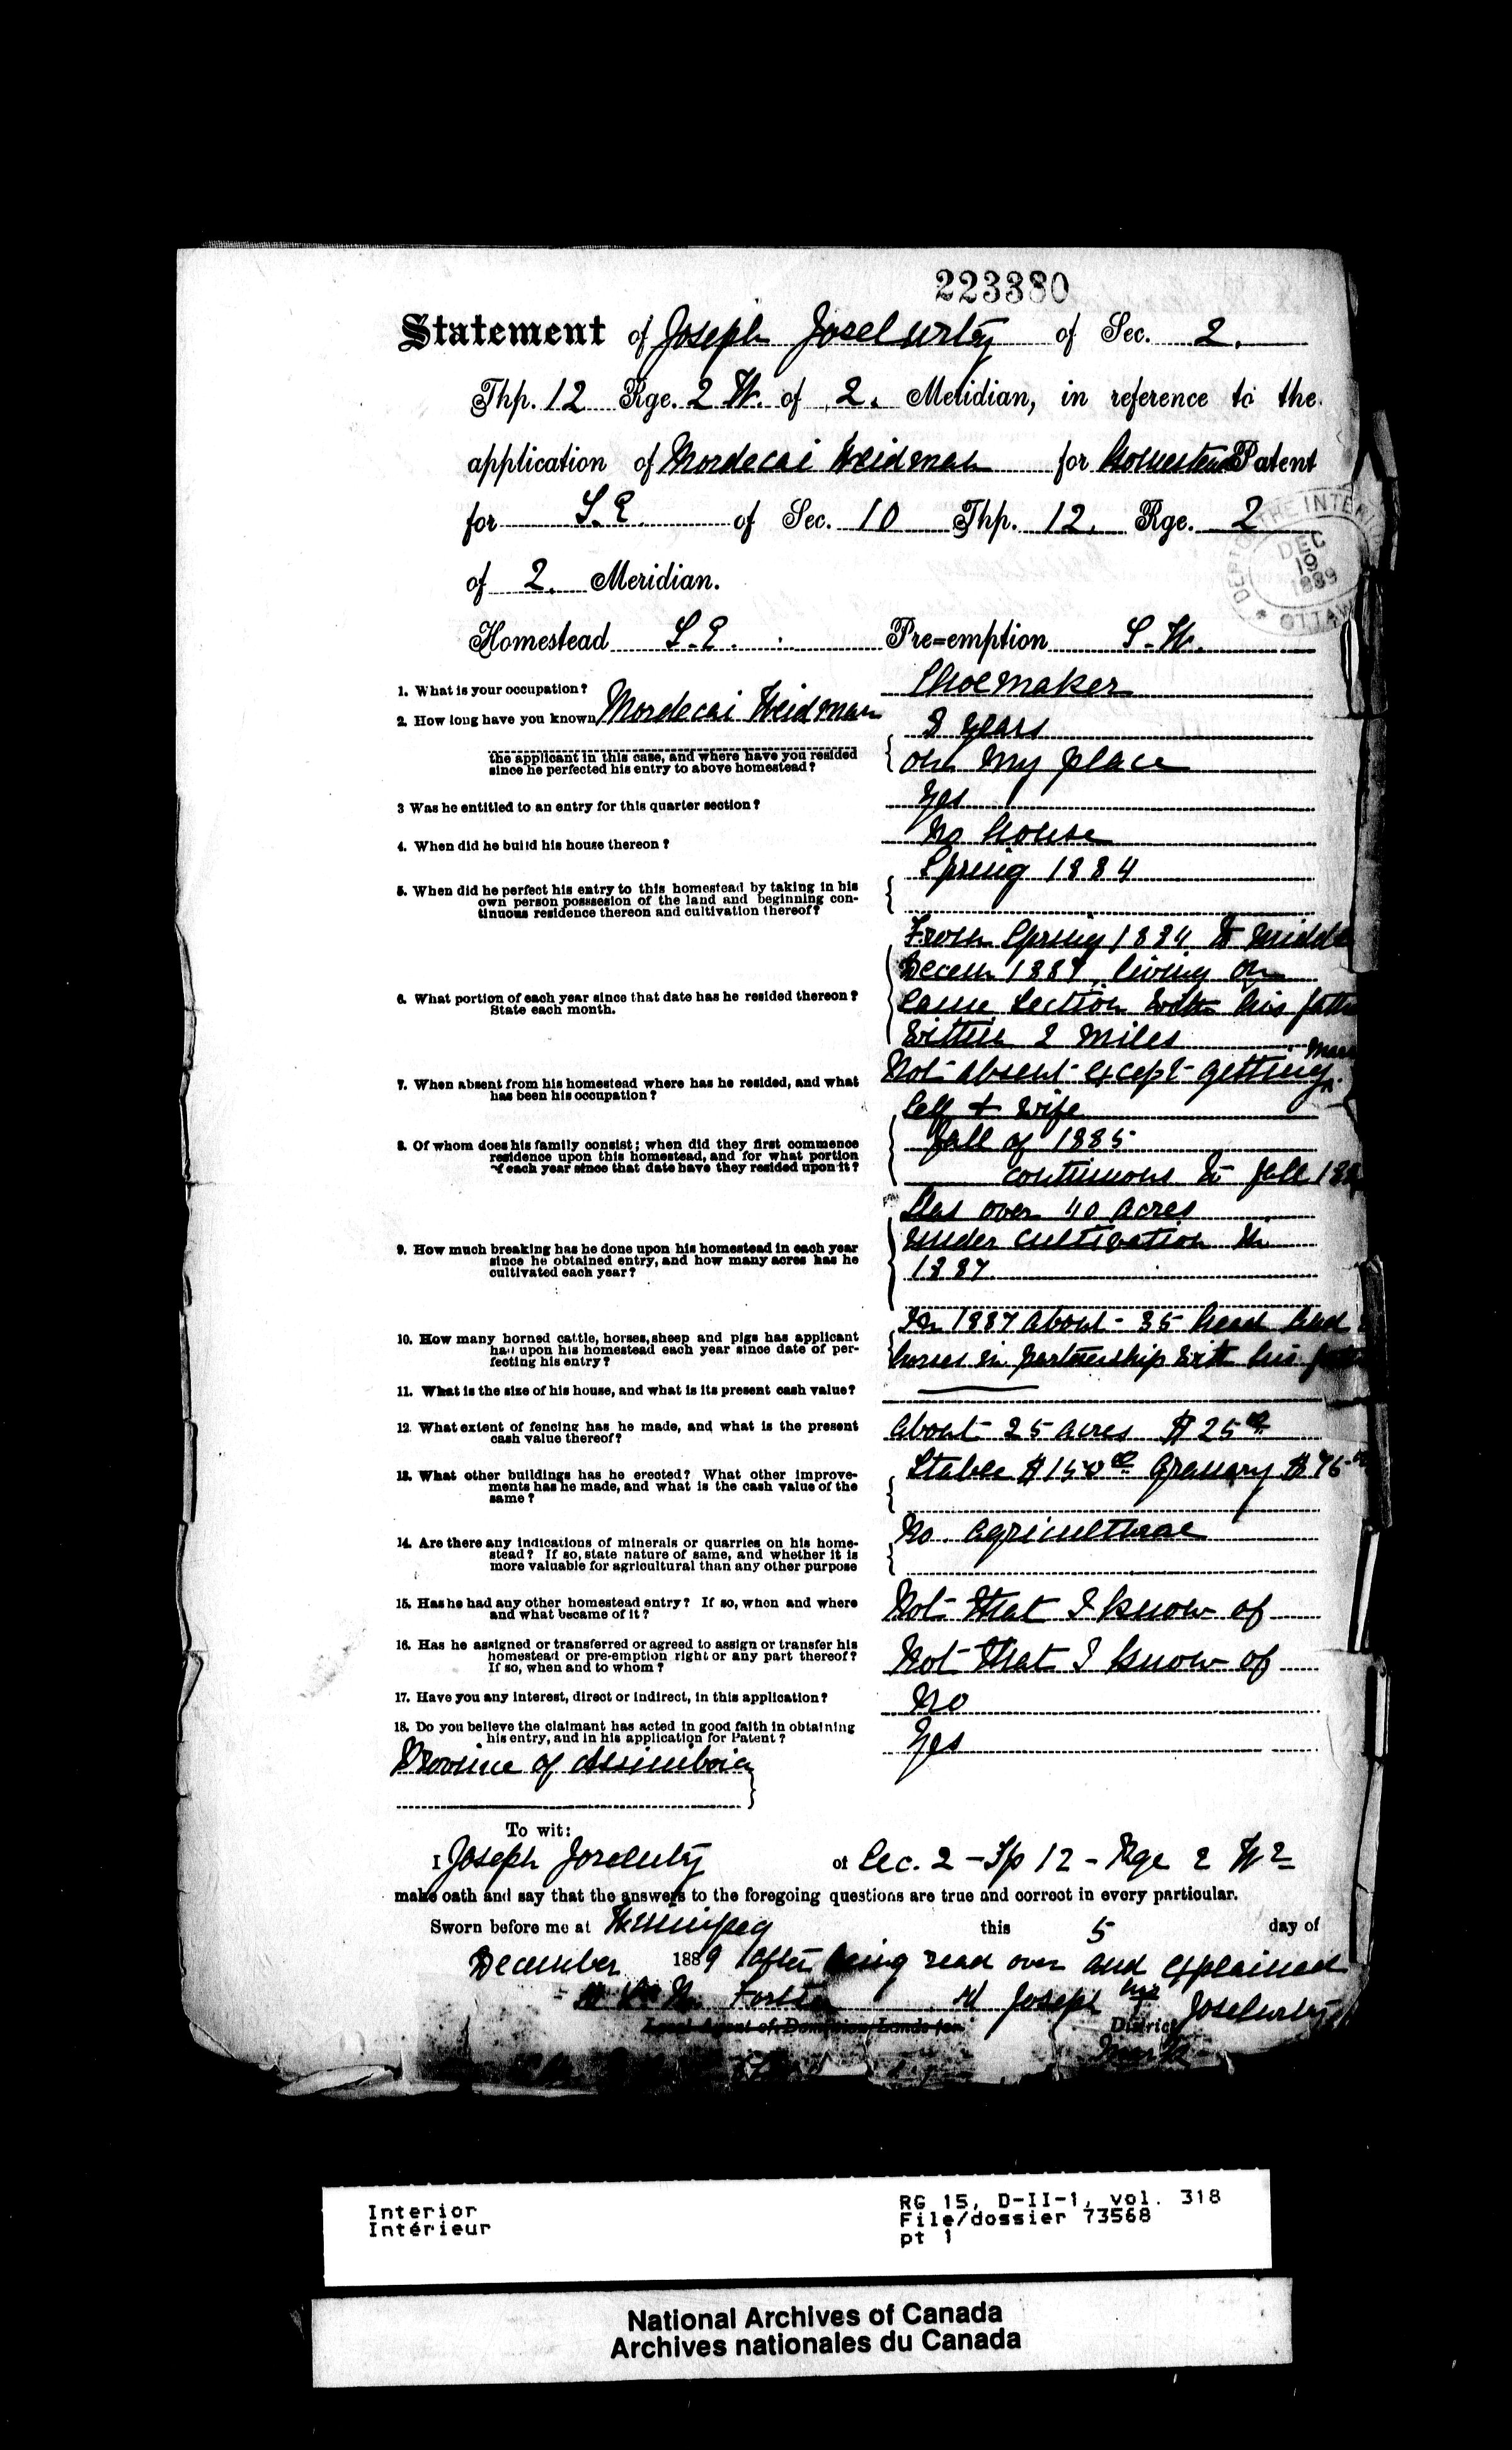 223380
Statement of Joseph Joselurty of Sec. 2.
Thp. 12 Rge. 2 W. of 2. Meridian, in reference to the
application of Mordecai Weidman for Homestead Patent
for S.E. of Sec. 10 Thp. 12. Rge. 2
of 2. Meridian.
THE INTERI
DEC
19
1889
OTTAWA
Homestead S.E. Pre=emption S.W.
1. What is your occupation? Shoemaker
2. How long have you known Mordecai Weidman
the applicant in this case, and where have you resided
since he perfected his entry to above homestead?
8 years
on my place
3 Was he entitled to an entry for this quarter section? Yes
4. When did he build his house thereon? No house
5. When did he perfect his entry to this homestead by taking in his
own person possession of the land and beginning con-
tinuous residence thereon and cultivation thereof?
Spring 1884
6. What portion of each year since that date has he resided thereon?
State each month.
From Spring 1884 to middle
Decem 1887, living on
same section with his
within 2 miles
7. When absent from his homestead where has he resided, and what
has been his occupation?
Not absent except getting
8. Of whom does his family consist; when did they first commence
residence upon this homestead, and for what portion
of each year since that date have they resided upon it?
Self + wife
fall of 1885
continuous to fall
9. How much breaking has he done upon his homestead in each year
since he obtained entry, and how many acres has he
cultivated each year?
Has over 40 acres
under cultivation in
1887
10. How many horned cattle, horses, sheep and pigs has applicant
had upon his homestead each year since date of per-
fecting his entry?
In 1887 about 35 head and
horses in partnership with his
11. What is the size of his house, and what is its present cash value?
12. What extent of fencing has he made, and what is the present
cash value thereof?
about 25 acres $25.00
13. What other buildings has he erected? What other improve-
ments has he made, and what is the cash value of the
same?
Stable $150.00 Granary $75
14. Are there any indications of minerals or quarries on his home-
stead? If so, state nature of same, and whether it is
more valuable for agricultural than any other purpose
No. agricultural
15. Has he had any other homestead entry? If so, when and where
and what became of it?
Not that I know of
16. Has he assigned or transferred or agreed to assign or transfer his
homestead or pre-emption right or any part thereof?
If so, when and to whom?
Not that I know of
17. Have you any interest, direct or indirect, in this application? No
18. Do you believe the claimant has acted in good faith in obtaining
his entry, and in his application for Patent?
Yes
Province of Assiniboia
To wit:
I Joseph Joselurty of Sec. 2 - Tp 12 - Rge 2 W 2
make oath and say that the answers to the foregoing questions are true and correct in every particular.
Sworn before me at Winnipeg this 5 day of
December 1889 after being read over and explained
Joseph his Joselurty
Local Agent of Dominion Lands for District
mark
Interior
Intérieur
RG 15, D-II-1, vol. 318
File/dossier 73568
pt 1
National Archives of Canada
Archives nationales du Canada